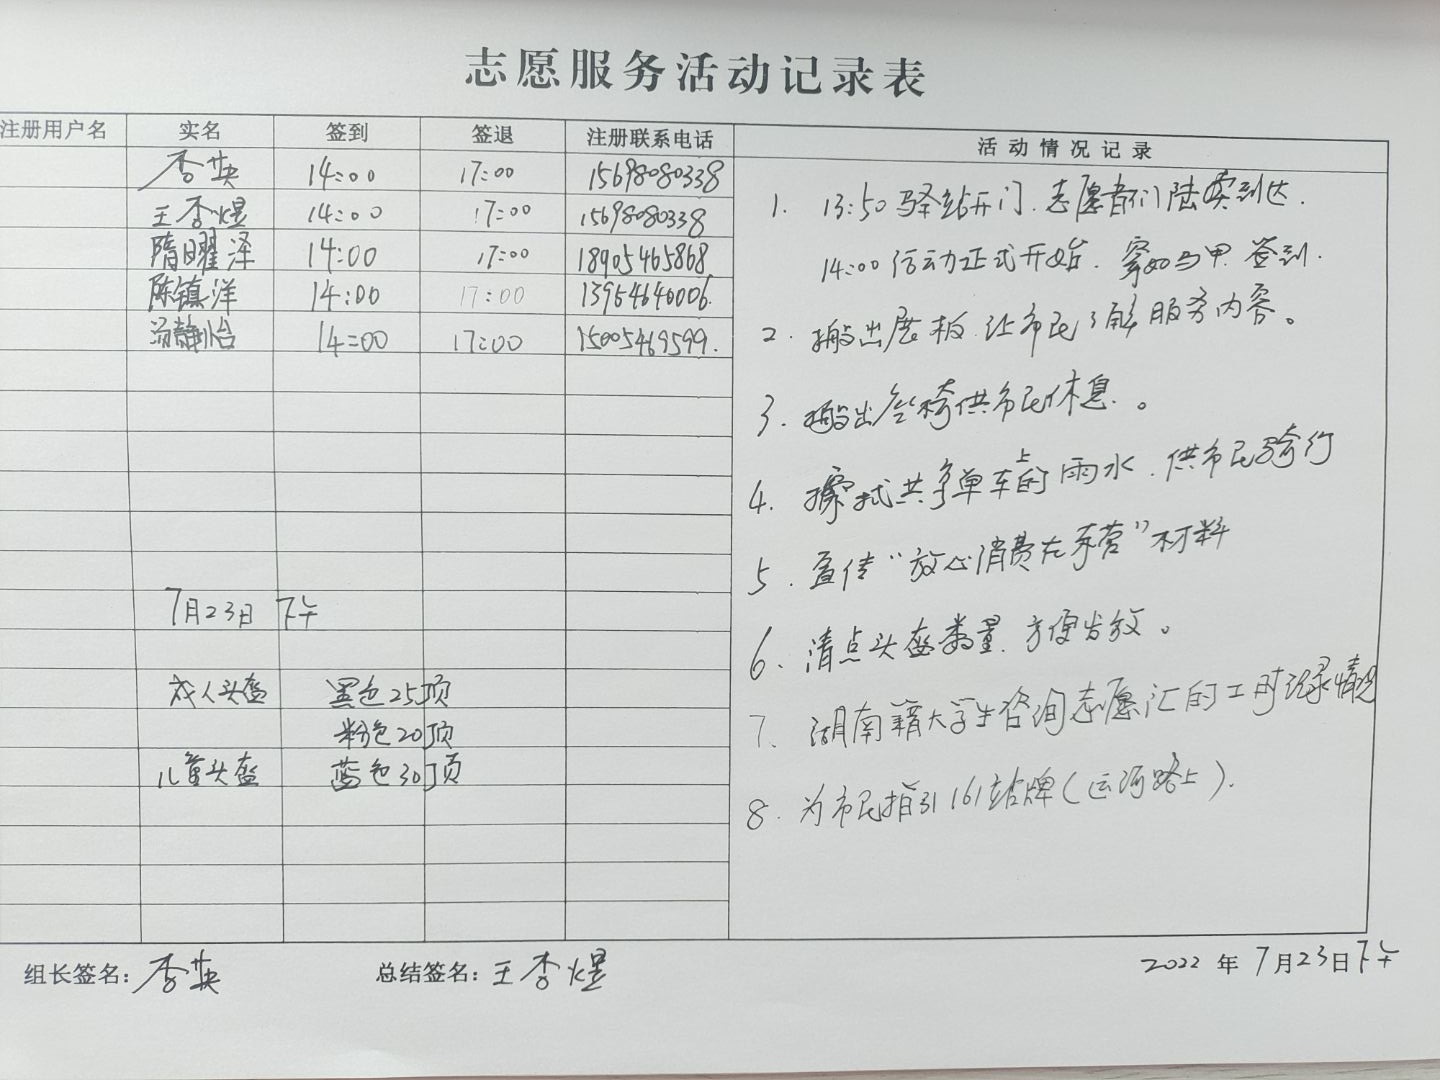 志愿服务活动记录表
注册用户名 实名 签到 签退 注册联系电话 活动情况记录
李英 14:00 17:00 15698080338
王李煜 14:00 17:00 15698080338
隋曜泽 14:00 17:00 18905465868
陈镇洋 14:00 17:00 13954640006.
静怡 14:00 17:00 15005469599.
7月23日 下午
成人头盔 黑色25顶
粉色20顶
儿童头盔 蓝色30顶
1. 13:50驿站开门.志愿者们陆续到达.
14:00活动正式开始.穿好马甲.签到.
2.搬出展板.让市民了解服务内容。
3.搬出坐椅供市民休息.。
4.擦拭共享单车上的雨水.供市民骑行
5.宣传“放心消费在东营”材料
6.清点头盔数量.方便发放。
7.湖南籍大学生咨询志愿汇的工时记录情况
8.为市民指引161站牌(运河路上).
组长签名:李英 总结签名:王李煜 2022年7月23日下午